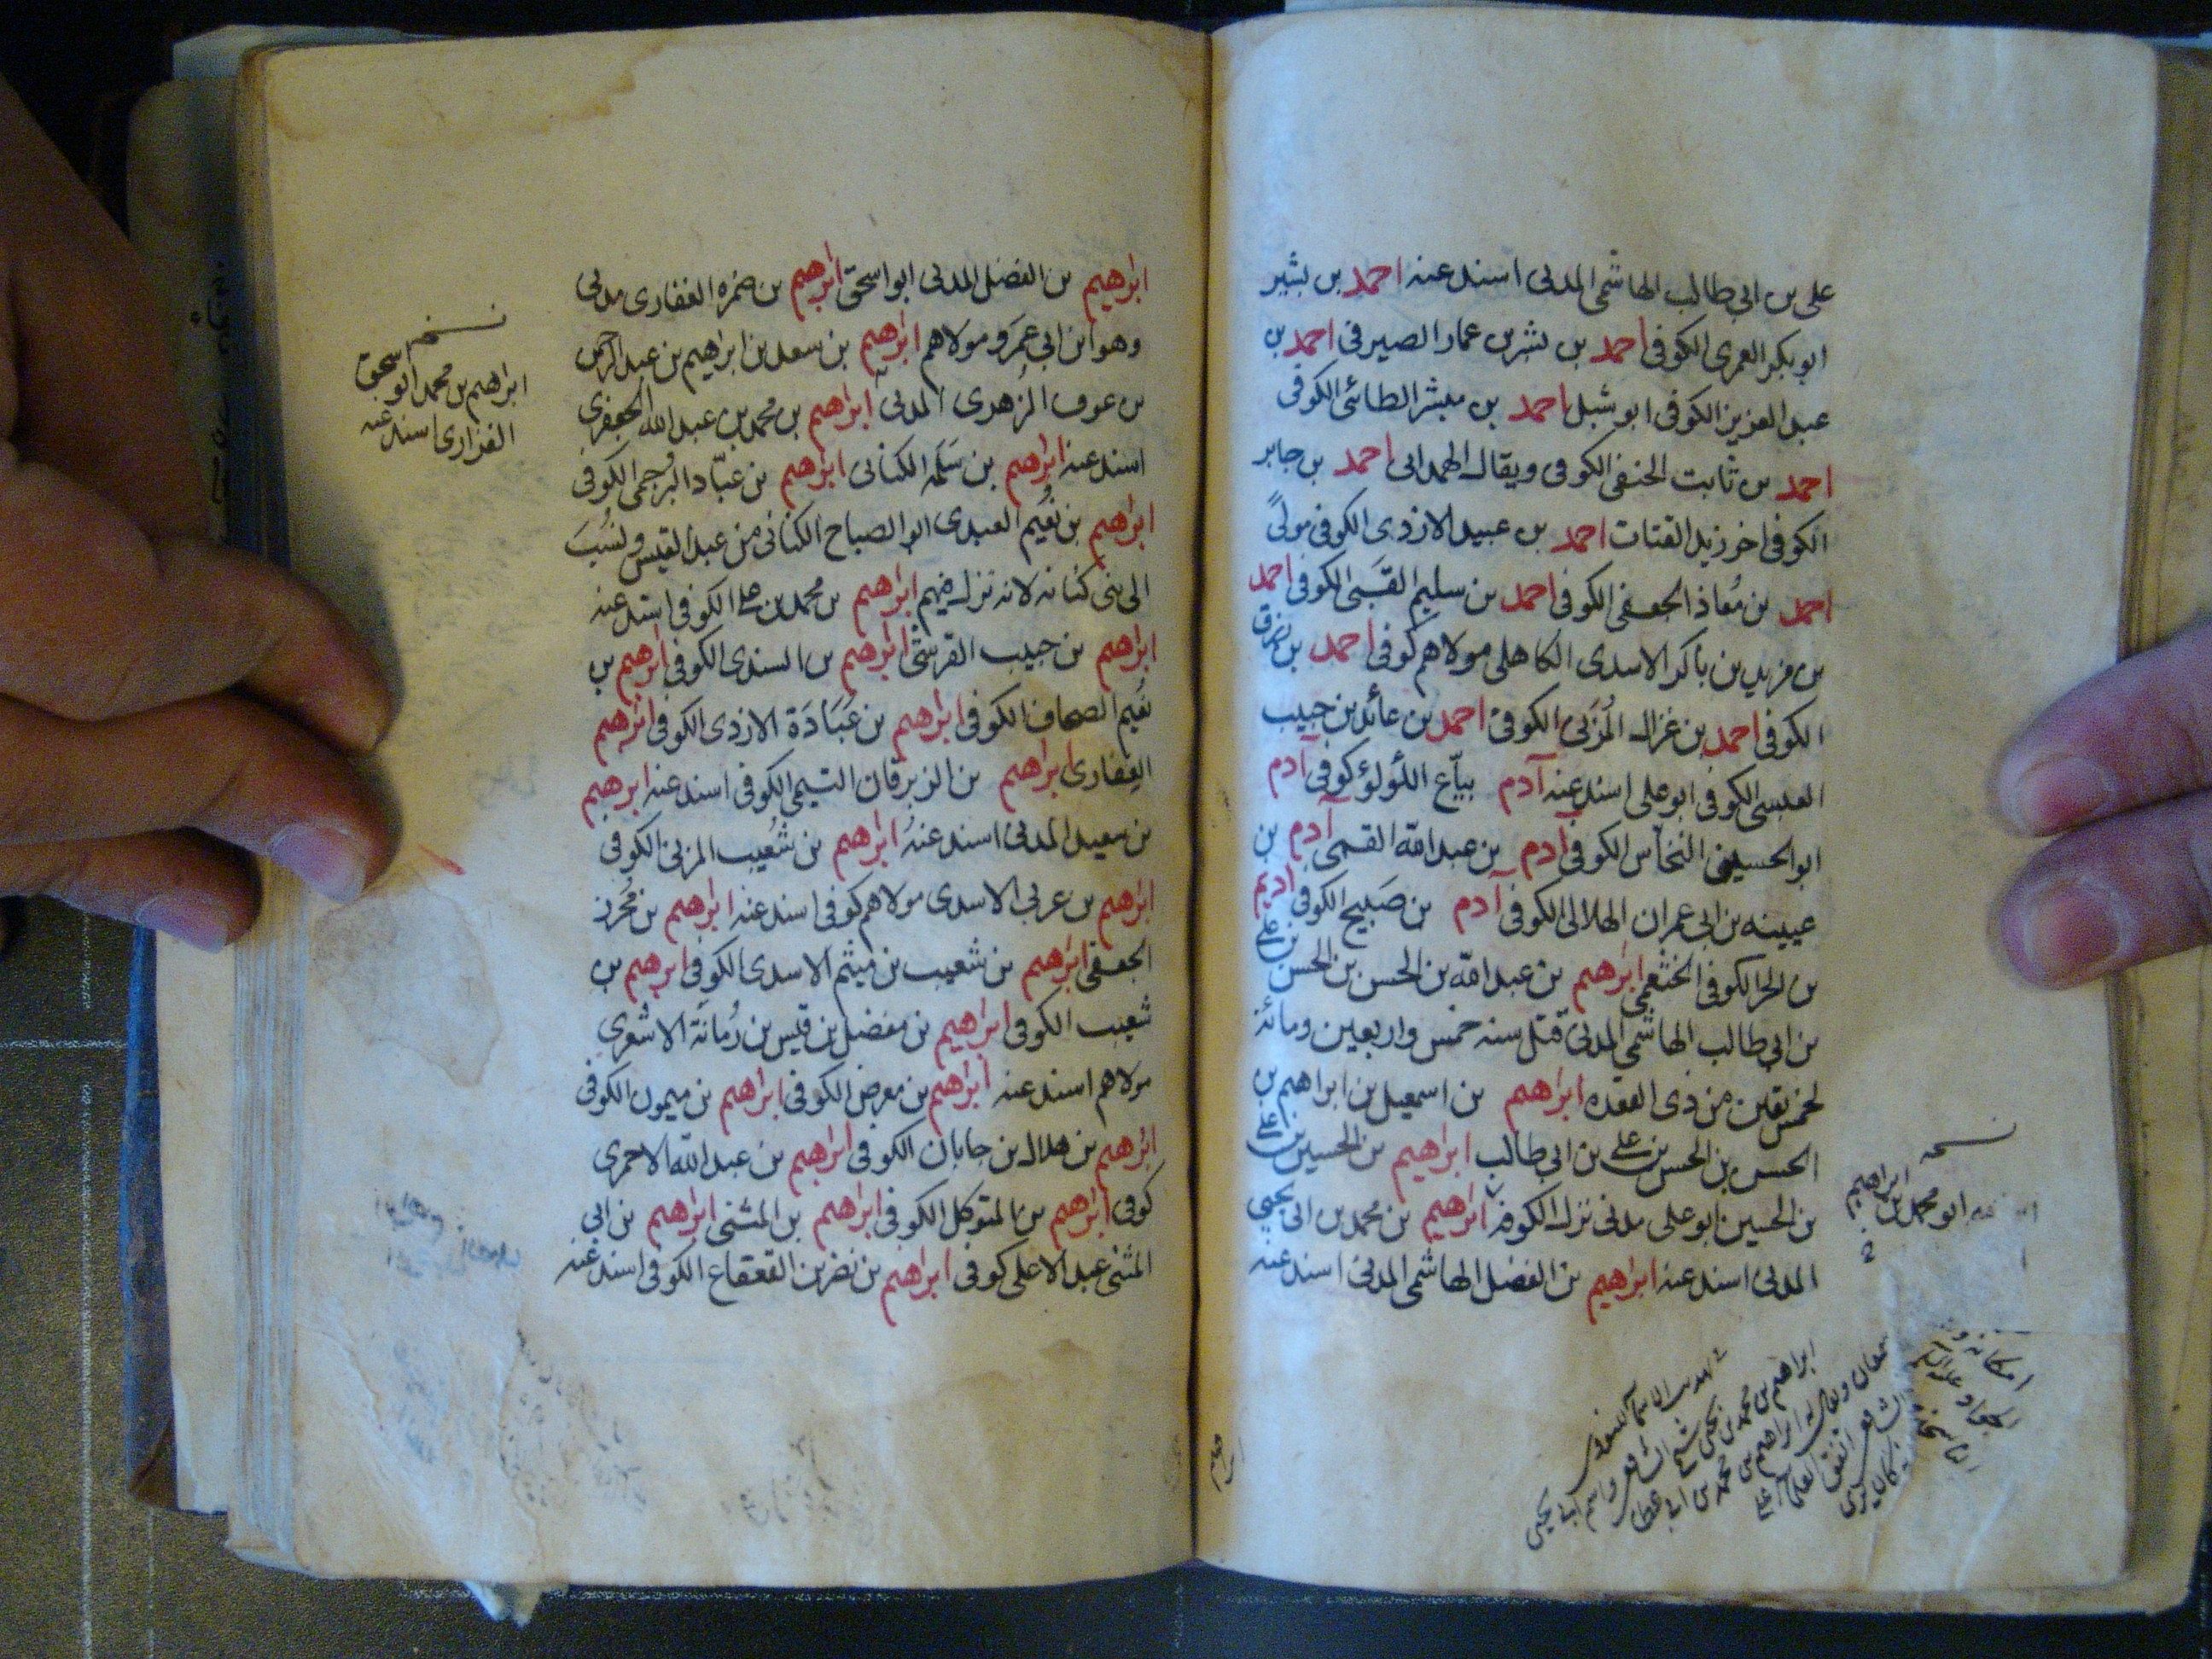 على بن ابى طالب الهاشمى المدنى اسند عنه احمد بن بشير
ابو بكر العمرى الكوفى احمد بن بشر بن عمار الصيرفى احمد بن
عبد العزيز الكوفى ابو شبل احمد بن مبشر الطائى الكوفى
احمد بن ثابت الحنفى الكوفى ويقال الهمدانى احمد بن جابر
الكوفى اخر زيد القتات احمد بن عبيد الازدى الكوفى مولىً
احمد بن مُعاذ الجعفى الكوفى احمد بن سليم القبّى الكوفى احمد
بن مزيد بن باكر الاسدى الكاهلى مولاهم كوفى احمد بن
الكوفى احمد بن غزال المُزَنى الكوفى احمد بن عائد بن حبيب
العبسى الكوفى ابو على اسند عنه آدم بيّاع اللؤلؤ كوفى آدم
ابو الحسين النخاس الكوفى آدم بن عبد الله القمى آدم بن
عيينه بن ابى عمران الهلالى الكوفى آدم بن صَبيح الكوفى اديم
بن الحر الكوفى الخثعمى ابرهيم بن عبد الله بن الحسن بن الحسن بن على
بن ابى طالب الهاشمى المدنى قتل سنه خمس واربعين ومائة
لخمس بقين من ذى القعده ابرهيم بن اسمعيل بن ابراهيم بن
الحسن بن الحسن بن على بن ابى طالب ابرهيم بن الحسين بن على
بن الحسين ابو على مدنى نزل الكوفه ابرهيم بن محمد بن ابى يحيى
المدنى اسند عنه ابرهيم بن الفضل الهاشمى المدنى اسند عنه
نسخه
ابو محمد بن ابراهيم
ابراهيم بن محمد بن يحيى شيخ الشافعى واسم ابى يحيى
ابرهيم بن الفضل المدنى ابو اسحق ابرهيم بن ضمره الغفارى مدنى
وهو ابن ابى عمرو مولاهم ابرهيم بن سعد بن ابراهيم بن عبد الرحمن
بن عوف الزُهرى المدنى ابرهيم بن محمد بن عبد الله الجعفرى
اسند عنه ابرهيم بن سَلَمه الكنانى ابرهيم بن عبّاد البُرجمى الكوفى
ابرهيم بن نُعيم العبدى ابو الصباح الكنانى من عبد القيس ونُسِبَ
الى بنى كنانه لانه نزل فيهم ابرهيم بن محمد بن على الكوفى اسند عنه
ابرهيم بن حبيب القرشى ابرهيم بن السندى الكوفى ابرهيم بن
نُعيم الصحاف الكوفى ابرهيم بن عُبَادَة الازدى الكوفى ابرهيم
الغِفارى ابرهيم بن الزبرقان التيمى الكوفى اسند عنه ابرهيم
بن سعيد المدنى اسند عنهُ ابرهيم بن شُعيب المزنى الكوفى
ابرهيم بن عربى الاسدى مولاهم كوفى اسند عنه ابرهيم بن مُحرز
الجعفى ابرهيم بن شعيب بن ميثم الاسدى الكوفى ابرهيم بن
شعيب الكوفى ابرهيم بن مفضل بن قيس بن رُمانَة الاشعرى
مولاهم اسند عنه ابرهيم بن معرض الكوفى ابرهيم بن ميمون الكوفى
ابرهيم بن هلال بن جابان الكوفى ابرهيم بن عبد الله الاحمرى
كوفى ابرهيم بن المتوكل الكوفى ابرهيم بن المثنى ابرهيم بن ابى
المثنى عبد الاعلى كوفى ابرهيم بن نضر بن القعقاع الكوفى اسند عنه
نسخه
ابراهيم بن محمد ابو اسحق
الفزارى اسند عنه